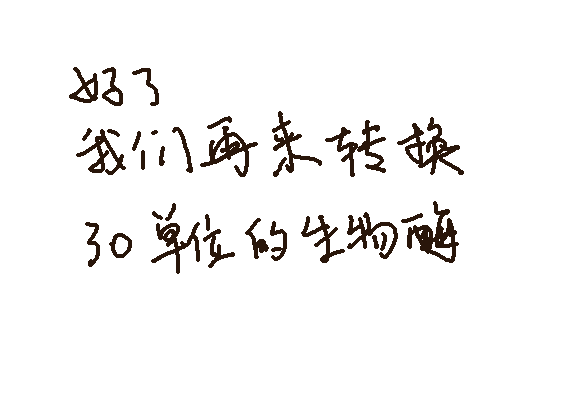 好了
我们再来转换
30单位的生物酶